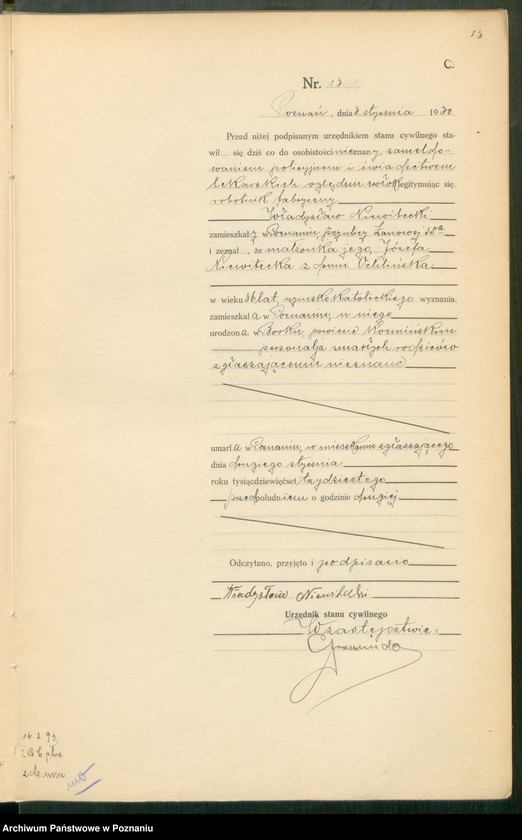 13
C.
Nr. 13
Poznań, dnia 3 stycznia 1930
Przed niżej podpisanym urzędnikiem stanu cywilnego sta-
wił się dziś co do osobistości nieznany, zameldo-
waniem policyjnem i świadectwem
lekarskiem legitymując się
robotnik fabryczny
Władysław Niewitecki
zamieszkały w Poznaniu, przy ulicy Łanowej 35a
i zeznał, że małżonka jego, Józefa
Niewitecka z domu
w wieku lat, rzymsko katolickiego wyznania.
zamieszkała w Poznaniu, u niego
urodzona w Borku, powiecie Koźmińskim
personalja zmarłych rodziców
zgłaszającemu nieznane
umarła w Poznaniu, w mieszkaniu zgłaszającego
dnia drugiego stycznia
roku tysiącdziewięćset trzydziestego
przedpołudniem o godzinie drugiej
Odczytano, przyjęto i podpisano
Władysław Niewitecki
Urzędnik stanu cywilnego
W zastępstwie:
16. 2. 93.
Archiwum Państwowe w Poznaniu